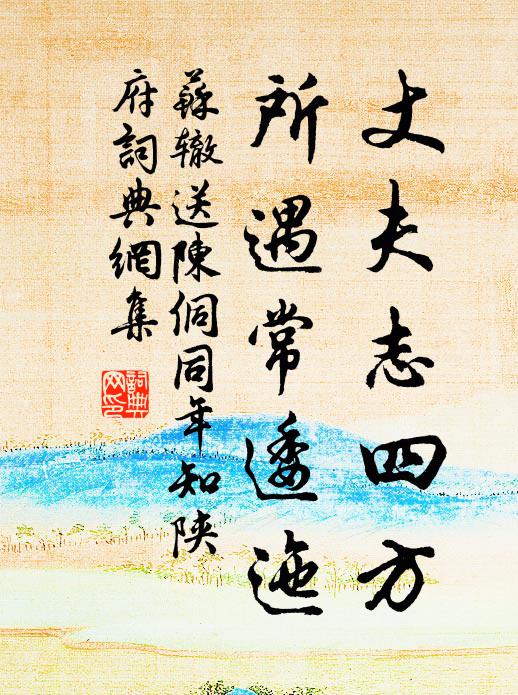 丈夫志四方
所遇常逶迤
蘇轍送陳侗同年知陝
府詞典網集
詞典
网印